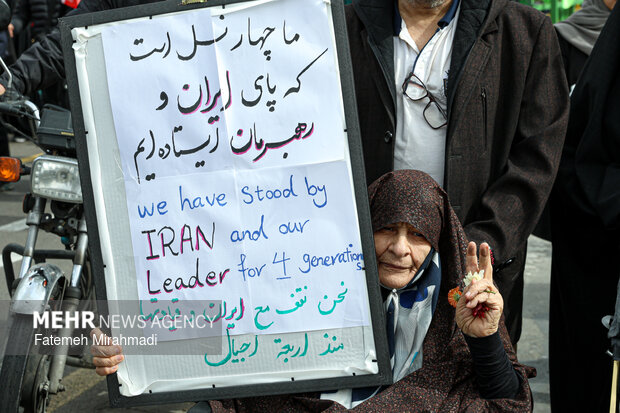 ما چهار نسل است
که پای ایران و
رهبرمان ایستاده ایم
we have stood by
IRAN and our
Leader for 4 generations
نحن نقف مع ایران و قادتها
منذ اربعة اجيال
MEHR NEWS AGENCY
Fatemeh Miralmahdi